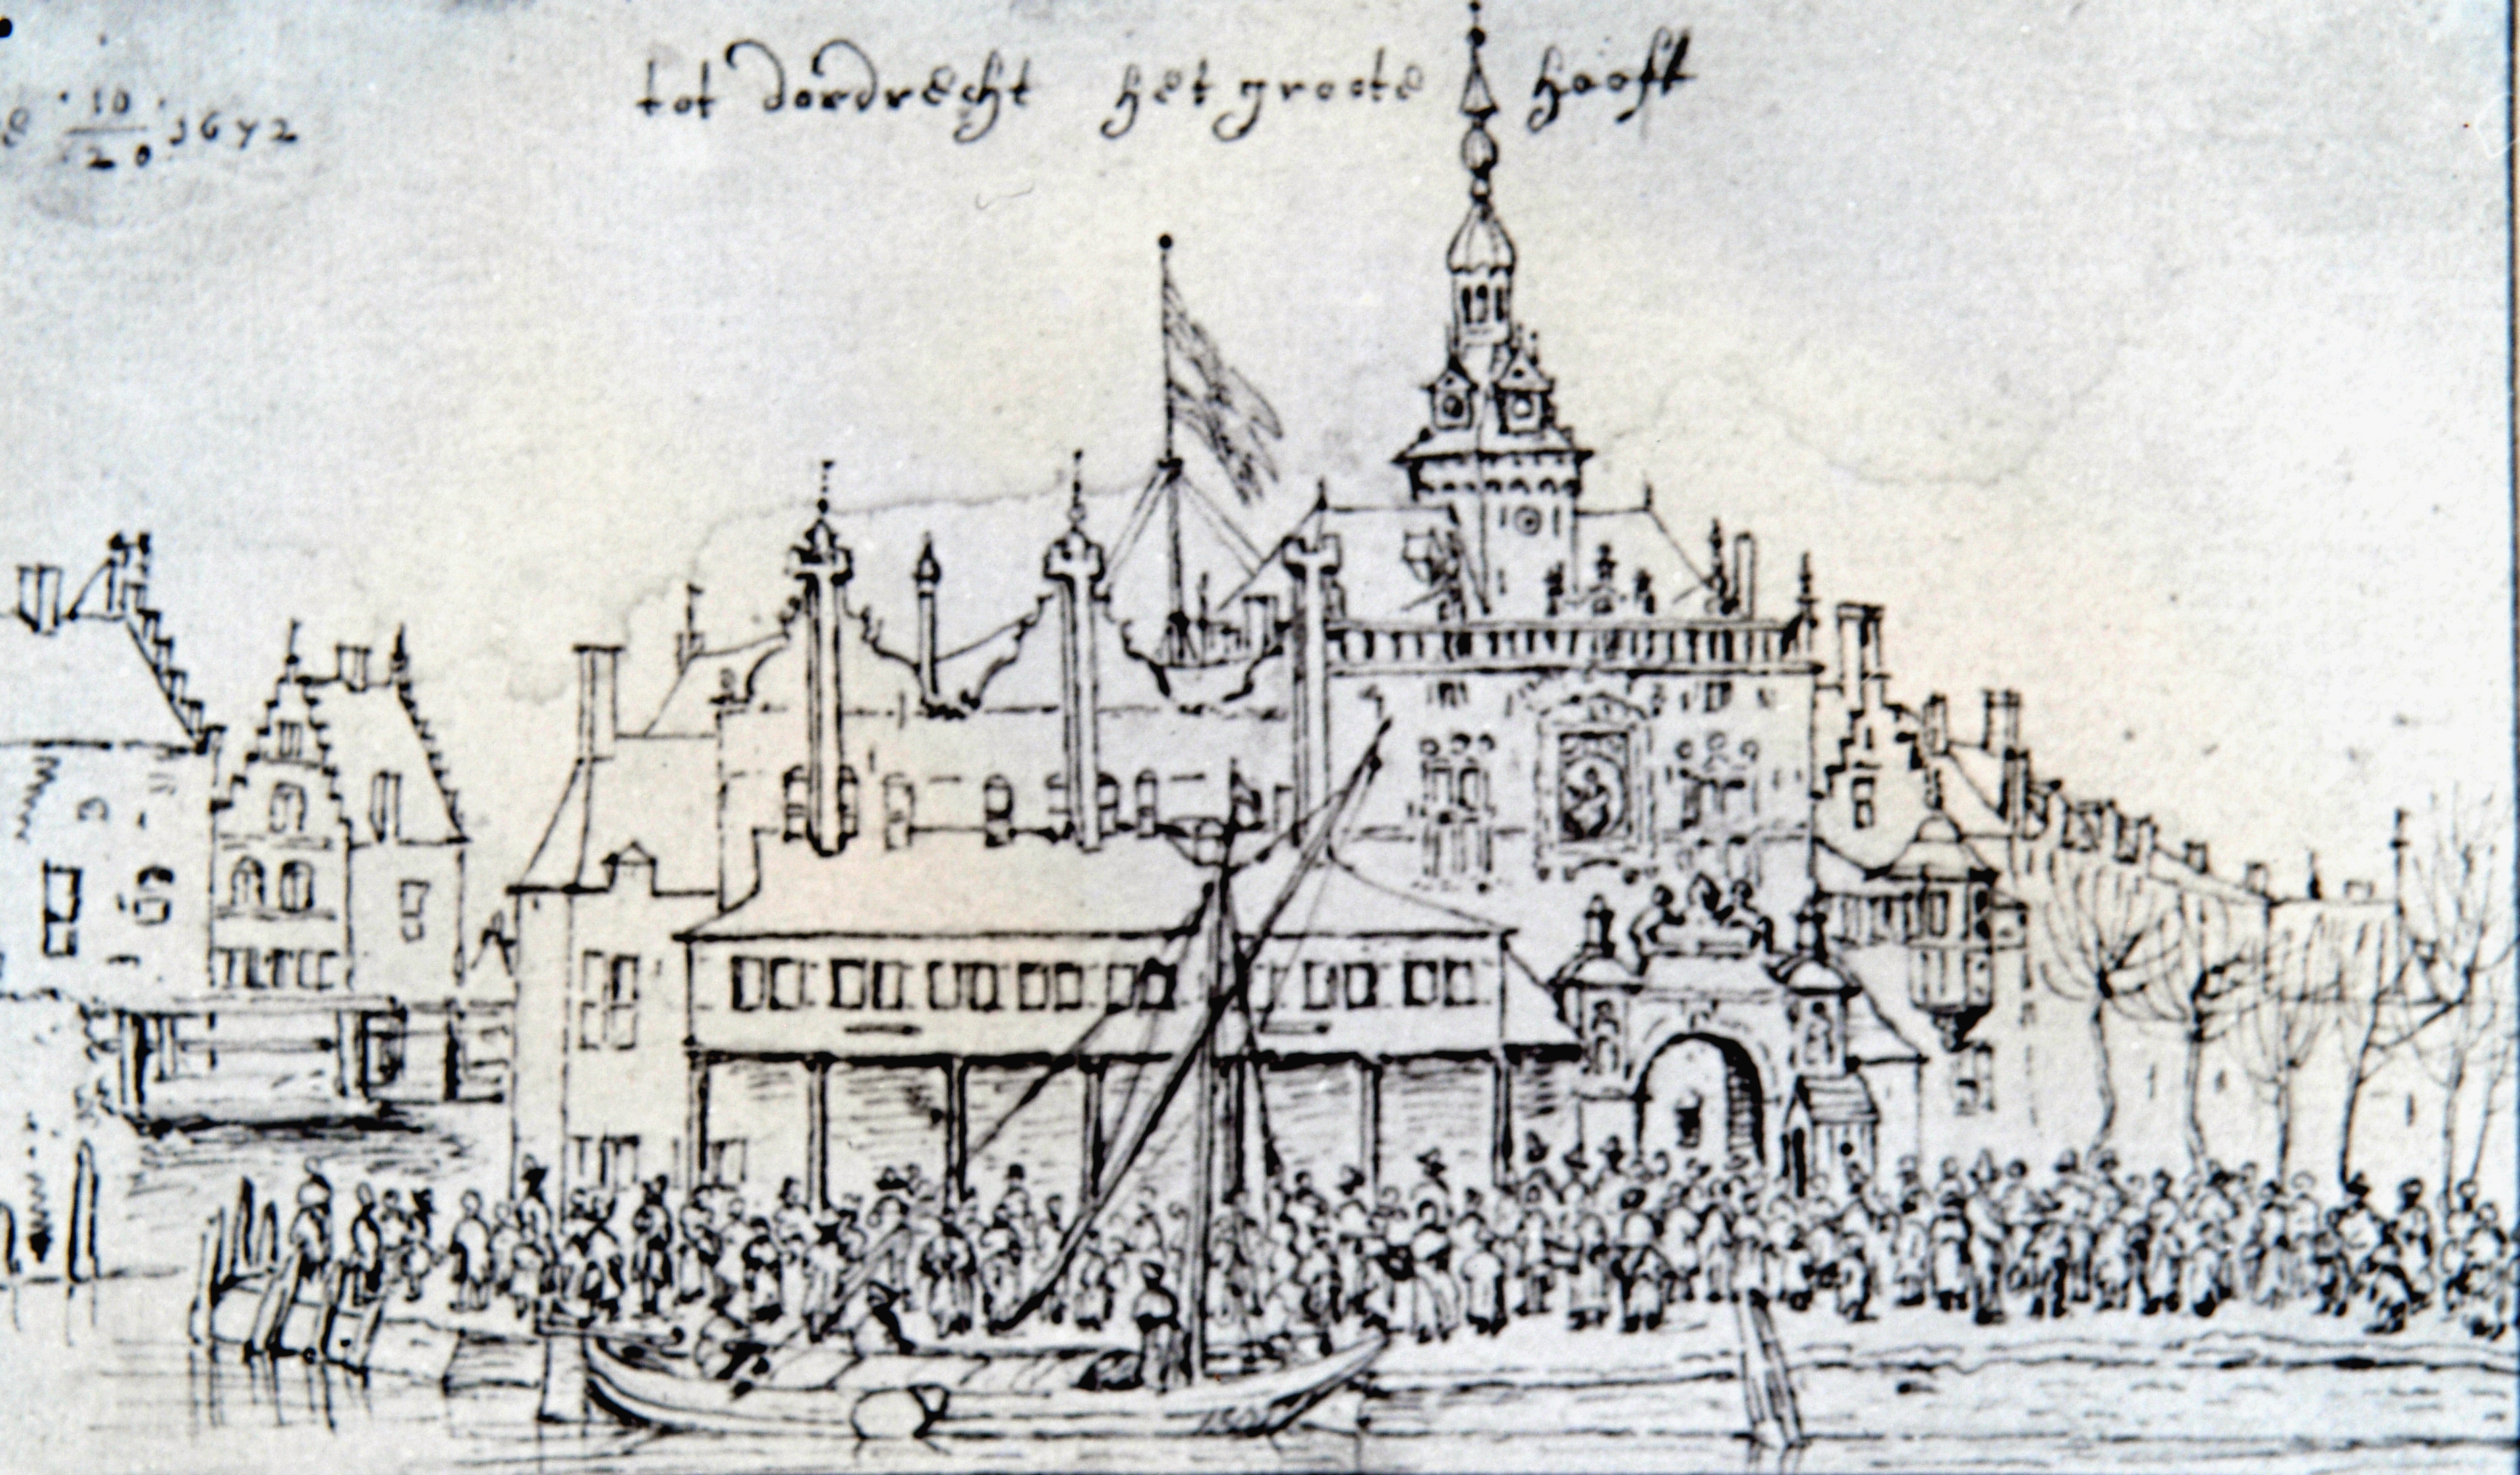 tot dordrecht het groote hooft
10
20 1672